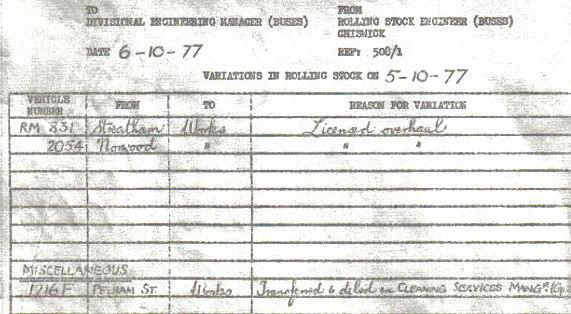 TO FROM
DIVISIONAL ENGINEERING MANAGER (BUSES) ROLLING STOCK ENGINEER (BUSES)
CHISWICK
DATE 6-10-77 REF: 508/1
VARIATIONS IN ROLLING STOCK ON 5-10-77
VEHICLE NUMBER FROM TO REASON FOR VARIATION
RM 831 Streatham Works Licensed overhaul
2054 Norwood " " "
MISCELLANEOUS
1716F PELHAM ST. Works Transferred to CLEANING SERVICES MANGR